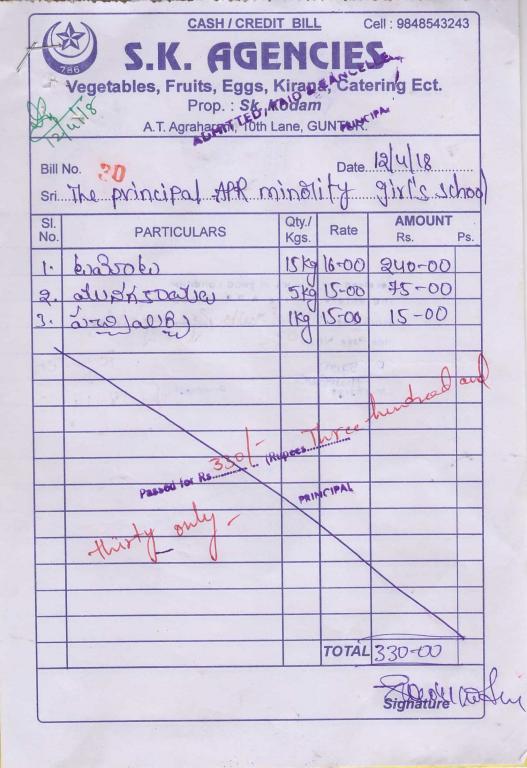 CASH / CREDIT BILL
Cell : 9848543243
786
S.K. AGENCIES
Vegetables, Fruits, Eggs, Kirana, Catering Ect.
Prop. : Sk. Kodam
A.T. Agraharam, 10th Lane, GUNTUR.
ADMITTED, PAID & CANCELLED
PRINCIPAL
12/4/18
Bill No. 30
Date 12/4/18
Sri The principal APR minority girl's school
Sl. No. PARTICULARS Qty./ Kgs. Rate AMOUNT Rs. Ps.
1. టమాటా 15kg 16-00 240-00
2. 5kg 15-00 75-00
3. 1kg 15-00 15-00
Passed for Rs. 330/- (Rupees Three hundred and
PRINCIPAL
thirty only -
TOTAL 330-00
Signature